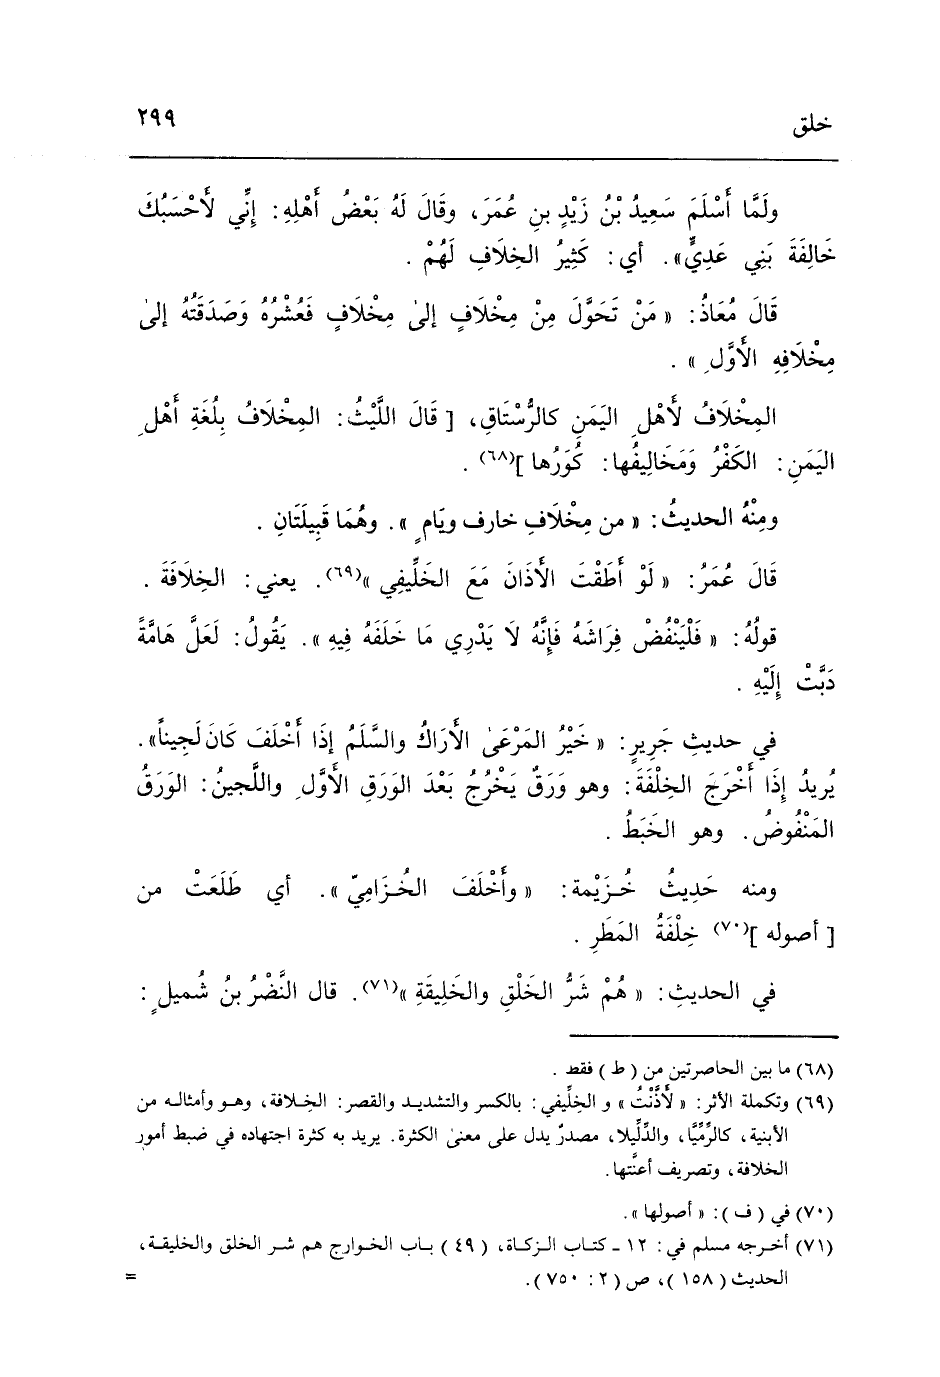 خلق ٢٩٩
ولَمَّا أَسْلَمَ سَعِيدُ بْنُ زَيْدِ بنِ عُمَرَ، وقَالَ لَهُ بَعْضُ أَهْلِهِ: إِنِّي لَأَحْسَبُكَ
خَالِفَةَ بَنِي عَدِيٍّ». أي: كَثِيرُ الخِلَافِ لَهُمْ .
قَالَ مُعَاذُ: « مَنْ تَحَوَّلَ مِنْ مِخْلَافٍ إلىٰ مِخْلَافٍ فَعُشْرُهُ وَصَدَقَتُهُ إلىٰ
مِخْلَافِهِ الأَوَّلِ » .
المِخْلَافُ لأَهْلِ اليَمَنِ كالرُّسْتَاقِ، [ قَالَ اللَّيْثُ: المِخْلَافُ بِلُغَةِ أَهْلِ
اليَمَنِ: الكَفْرُ وَمَخَالِيفُها: كُوَرُها ](٦٨) .
ومِنْهُ الحديثُ: « من مِخْلَافِ خارف ويَامٍ ». وهُمَا قَبِيلَتَانِ .
قَالَ عُمَرُ: « لَوْ أَطَقْتَ الأَذَانَ مَعَ الخَلِّيفِي »(٦٩). يعني: الخِلَافَةَ .
قولُهُ: « فَلْيَنْفُضْ فِرَاشَهُ فَإِنَّهُ لَا يَدْرِي مَا خَلَفَهُ فِيهِ ». يَقُولُ: لَعَلَّ هَامَّةً
دَبَّتْ إِلَيْهِ .
في حديثِ جَرِيرٍ: « خَيْرُ المَرْعَىٰ الأَرَاكُ والسَّلَمُ إذَا أَخْلَفَ كَانَ لَجِيناً».
يُرِيدُ إِذَا أَخْرَجَ الخِلْفَةَ: وهو وَرَقٌ يَخْرُجُ بَعْدَ الوَرَقِ الأَوَّلِ واللَّجينُ: الوَرَقُ
المَنْفُوضُ. وهو الخَبَطُ .
ومنه حَدِيثُ خُزَيْمة: « وأَخْلَفَ الخُزَامِيّ ». أي طَلَعَتْ من
[ أصوله ](٧٠) خِلْفَةُ المَطَرِ .
في الحديثِ: « هُمْ شَرُّ الخَلْقِ والخَلِيقَةِ »(٧١). قال النَّضْرُ بنُ شُميلٍ :
(٦٨) ما بين الحاصرتين من ( ط ) فقط .
(٦٩) وتكملة الأثر: « لَأَذَّنْتُ » و الخِلِّيفي: بالكسر والتشديد والقصر: الخلافة، وهو وأمثاله من
الأبنية، كالرِّمِّيَّا، والدِّلِّيلا، مصدرٌ يدل على معنىٰ الكثرة. يريد به كثرة اجتهاده في ضبط أمور
الخلافة، وتصريف أعنَّتها.
(٧٠) في ( ف ): « أصولها ».
(٧١) أخرجه مسلم في: ١٢ ـ كتاب الزكاة، ( ٤٩ ) باب الخوارج هم شر الخلق والخليقة،
الحديث ( ١٥٨ )، ص ( ٢: ٧٥٠ ). =